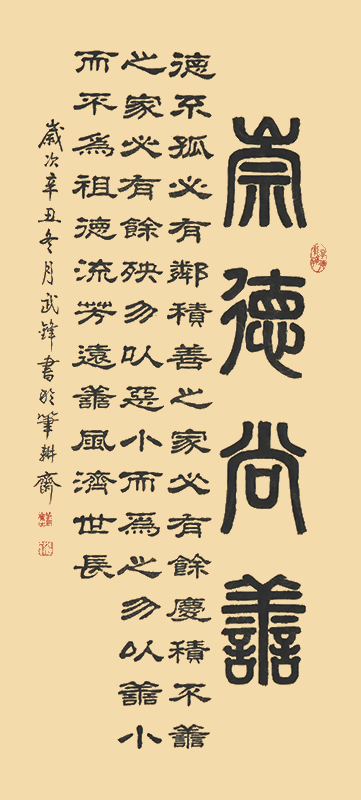 崇德尚譱
德不孤必有鄰積善之家必有餘慶積不譱
之家必有餘殃勿以惡小而為之勿以譱小
而不為祖德流芳遠譱風濟世長
歲次辛丑冬月武鋒書於筆耕齋